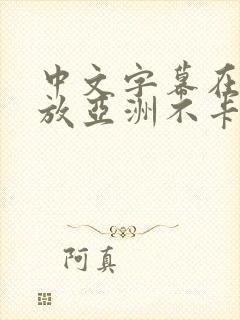 中文字幕在
放亞洲不卡
阿真